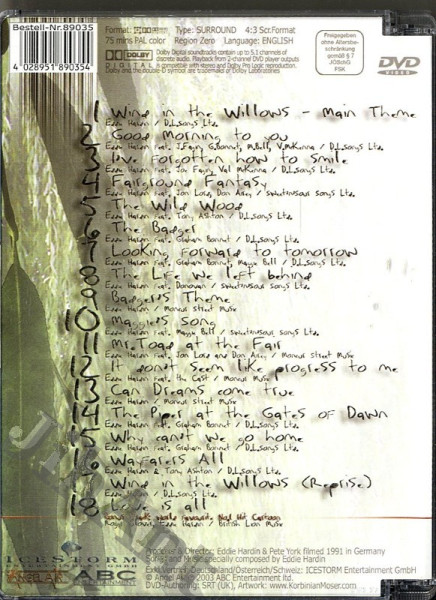 Bestell-Nr.89035
4 028951 890354
Format: Type: SURROUND 4:3 Scr.Format
75 mins PAL color Region Zero Language: ENGLISH
DOLBY DIGITAL
Dolby Digital soundtracks contain up to 5.1 channels of
discrete audio. Playback from 2-channel DVD player outputs
is compatible with stereo and Dolby Pro Logic reproduction.
Dolby and the double-D symbol are trademarks of Dolby Laboratories
Freigegeben
ohne Altersbe-
schränkung
gemäß § 7
JÖSchG
FSK
DVD
VIDEO
1 Wind in the Willows - Main Theme
Eddie Hardin / D.L.Songs Ltd.
2 Good Morning to you
Eddie Hardin feat. J.Fagin, G.Bonnet, M.Bell, V.McKenna / D.L.Songs Ltd.
3 I've Forgotten how to Smile
Eddie Hardin feat. Joe Fagin, Val McKenna / D.L.Songs Ltd.
4 Fairground Fantasy
Eddie Hardin feat. Jon Lord, Don Airey /
5 The Wild Wood
Eddie Hardin feat. Tony Ashton / D.L.Songs Ltd.
6 The Badger
Eddie Hardin / D.L.Songs Ltd.
7 Looking Forward to tomorrow
Eddie Hardin feat. Graham Bonnet, Maggie Bell / D.L.Songs Ltd.
8 The Life we left behind
Eddie Hardin feat. Donovan /
9 Badgers Theme
Eddie Hardin / Street Music
10 Maggies Song
Eddie Hardin feat. Maggie Bell /
11 Mr.Toad at the Fair
Eddie Hardin feat. Jon Lord and Don Airey / Street Music
12 It don't seem like progress to me
Eddie Hardin feat. the Cast / Music
13 Can Dreams come true
Eddie Hardin / Street Music
14 The Piper at the Gates of Dawn
Eddie Hardin feat. Graham Bonnet / D.L.Songs Ltd.
15 Why can't we go home
Eddie Hardin feat. Graham Bonnet / D.L.Songs Ltd.
16 Wayfarers All
Eddie Hardin & Tony Ashton / D.L.Songs Ltd.
17 Wind in the Willows (Reprise)
Eddie Hardin / D.L.Songs Ltd.
18 Love is all
Cartoon
Roger Glover, Eddie Hardin / British Lion Music
Producer & Director: Eddie Hardin & Pete York filmed 1991 in Germany
Score and specially composed by Eddie Hardin
Exkl.Vertrieb Deutschland/Österreich/Schweiz: ICESTORM Entertainment GmbH
© Angel Air 2003 ABC Entertainment Ltd.
DVD-Authoring: SRT (UK), Artwork: www.KorbinianMoser.com
ICESTORM
ENTERTAINMENT GMBH
ANGEL AIR
ABC
Entertainment